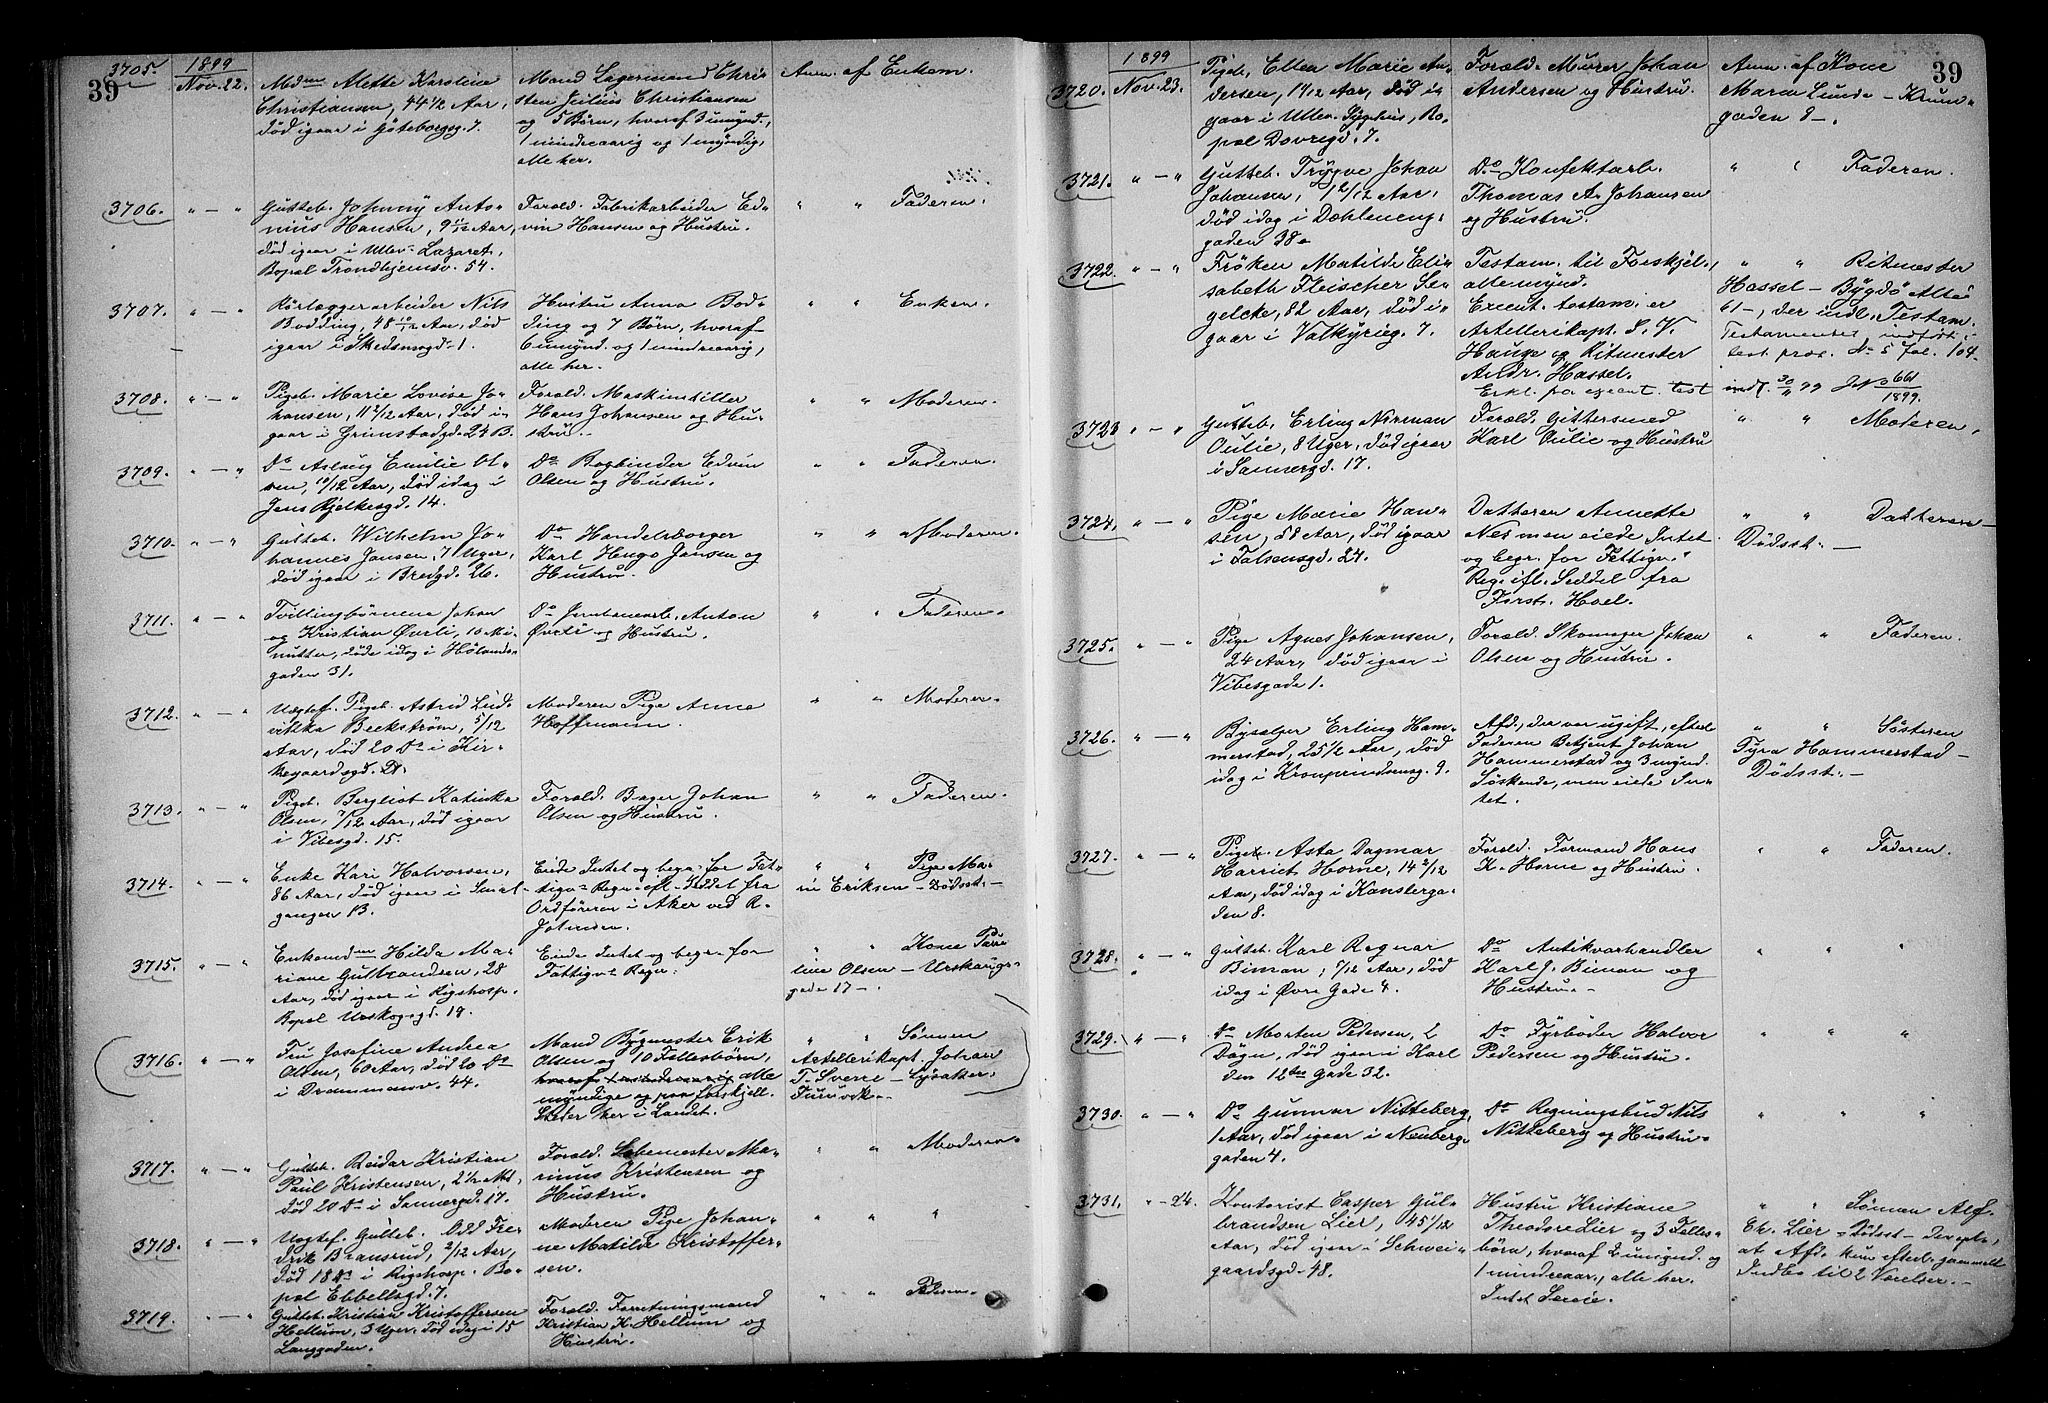 39
3705. 1899 Nov. 22.
Mdm Alette Karoline
Christiansen, 44 1/2 Aar,
død igaar i Göteborgg. 7.
Mand Lagermand Chri-
sten Julius Christiansen
og 5 Børn, hvoraf 3 umynd.,
1 mindreaarig og 1 myndig,
alle her.
Anm. af Enkem.
3706. " — "
Gutteb. Johnny Anto-
nius Hansen, 9 11/12 Aar,
død igaar i Ullev. Lazaret,
Bopæl Trondhjemsv. 54.
Foræld. Fabrikarbeider Ed-
vin Hansen og Hustru.
" " Faderen.
3707. " — "
Rørlæggerarbeider Nils
Bodding, 48 10/12 Aar, død
igaar i Skedsmogd. 1.
Hustru Anna Bod-
ding og 7 Børn, hvoraf
6 umynd. og 1 mindreaarig,
alle her.
" " Enken.
3708. " — "
Pigeb. Marie Lovise Jo-
hansen, 11 2/12 Aar, død i-
gaar i Grimstadgd. 24 B.
Foræld. Maskinstiller
Hans Johansen og Hu-
stru.
" " Moderen.
3709. " — "
Do Aslaug Emilie Ol-
sen, 10/12 Aar, død idag i
Jens Bjelkesgd. 14.
Do Bogbinder Edvin
Olsen og Hustru.
" " Faderen.
3710. " — "
Gutteb. Wilhelm Jo-
hannes Jansen, 7 Uger,
død igaar i Bredgd. 26.
Do Handelsborger
Karl Hugo Jansen og
Hustru.
" " Moderen.
3711. " — "
Tvillingbørnene Johan
og Kristian Øvrli, 10 Mi-
nutter, døde idag i Hølands-
gaden 31.
Do Jernbanearb. Anton
Øvrli og Hustru.
" " Faderen.
3712. " — "
Uægtef. Pigeb. Astrid Lud-
vikka Beckstrøm, 5/12
Aar, død 20 Ds i Kir-
kegaardsgd.
Moderen Pige Anna
Hoffmann.
" " Moderen.
3713. " — "
Pigeb. Bergliot Katinka
Olsen, 7/12 Aar, død igaar
i Vibesgd. 15.
Foræld. Bager Johan
Olsen og Hustru.
" " Faderen.
3714. " — "
Enke Kari Halvorsen,
86 Aar, død igaar i Smal-
gangen 13.
Eiede Intet og begr. for Fat-
tigv. Regn. efl. Seddel fra
Ordføreren i Aker ved R.
Johnsen.
" " Pige Ma-
rie Eriksen — Dødsst. —
3715. " — "
Enkemdm Hilda Ma-
riane Gulbrandsen, 28
Aar, død igaar i Rigshosp.
Bopæl Urskogsgd. 19.
Eiede Intet og begr. for
Fattigv. Regn.
" " Kone Pau-
line Olsen — Urskougs-
gade 17 —.
3716. " — "
Fru Josefine Andrea
Olsen, 60 Aar, død 20 Ds
i Drammensv. 44.
Mand Bygmester Erik
Olsen og 10 Fællesbørn,
hvoraf 1 mindreaarig alle
myndige og paa forskjell.
Steder her i Landet.
" " Sønnen
Artellerikapt. Johan
T. Sverre — Lysaker,
Furuvik.
3717. " — "
Gutteb. Reidar Kristian
Paul Kristensen, 2 1/2 Md,
død 20 Ds i Sannergd. 17.
Foræld. Sæbemester Ma-
rinus Kristensen og
Hustru.
" " Moderen.
3718. " — "
Uægtef. Gutteb. Odd Fre-
drik Bransrud, 2/12 Aar,
død 18 Ds i Rigshosp. Bo-
pæl Ebbellsgd. 7.
Moderen Pige Johan-
ne Matilde Kristoffer-
sen.
" " "
3719. " — "
Gutteb. Kristian Kristoffersen
Hellum, 3 Uger, død idag i 15
Langgaden.
Foræld. Forretningsmand
Kristian K. Hellum og
Hustru.
" " Faderen.
39
3720. 1899 Nov. 23.
Pigeb. Ellen Marie An-
dersen, 1 1/12 Aar, død i-
gaar i Ullev. Sygehus, Bo-
pæl Dovregd. 7.
Foræld. Murer Johan
Andersen og Hustru.
Anm. af Kone
Maren Lunde — Krum-
gaden 8 —.
3721. " — "
Gutteb. Trygve Johan
Johansen, 1 2/12 Aar,
død idag i Dæhleneng-
gaden 38.
Do Konfektarb.
Thomas A. Johansen
og Hustru.
" " Faderen.
3722. " — "
Frøken Matilde Eli-
sabeth Fleischer Se-
gelcke, 82 Aar, død i-
gaar i Valkyrieg. 7.
Testam. til Forskjel.,
alle mynd.
Execut. testam. er
Artellerikapt. S. V.
Hauge og Ritmester
Andr. Hassel.
Erkl. fra execut. test
" " Ritmester
Hassel — Bygdø Allé
61 —, der indl. Testam.
Testamentet indført i
test. prot. No 5 fol. 104.
indk. 30/11 99 J No 661/1899.
3723 " — "
Gutteb. Erling Norman
Oulie, 8 Uger, død igaar
i Sannergd. 17.
Foræld. Gittersmed
Karl Oulie og Hustru
" " Moderen.
3724. " — "
Pige Marie Han-
sen, 58 Aar, død igaar
i Falsensgd. 24.
Datteren Annette
Næs men eiede Intet
og begr. for Fattigv.
Reg. ifl. Seddel fra
Forst. Hoel.
" " Datteren —
Dødsst. —
3725. " — "
Pige Agnes Johansen,
24 Aar, død igaar i
Vibesgade 1.
Foræld. Skomager Johan
Olsen og Hustru.
" " Faderen.
3726. " — "
Bysælger Erling Ham-
merstad, 25 1/2 Aar, død
idag i Kronprindsensg. 9.
Afd., der var ugift, efterl.
Faderen Betjent Johan
Hammerstad og 3 mynd.
Søskende, men eiede In-
tet.
" " Søsteren
Tyra Hammerstad —
Dødsst. —
3727. " — "
Pigeb. Asta Dagmar
Harriet Horne, 14 2/12
Aar, død idag i Kanslerga-
den 8.
Foræld. Formand Hans
K. Horne og Hustru.
" " Faderen.
3728. " — "
Gutteb. Karl Ragnar
Biman, 7/12 Aar, død
idag i Øvre Gade 4.
Do Antikvarhandler
Karl J. Biman og
Hustru.
" " "
3729. " — "
Do Morten Pedersen, 2
Døgn, død igaar i Karl
den 12tes Gade 32.
Do Fyrbøder Halvor
Pedersen og Hustru.
" " "
3730. " — "
Do Gunnar Nitteberg,
1 Aar, død igaar i Neuberg-
gaden 4.
Do Regningsbud Nils
Nitteberg og Hustru.
" " "
3731. " — 24.
Kontorist Casper Gul-
brandsen Lier, 45 1/12
Aar, død igaar i Schwei-
gaardsgd. 48.
Hustru Kristiane
Theodore Lier og 3 Fælles-
børn, hvoraf 2 umynd. og
1 mindreaar., alle her.
Intet Særeie.
" " Sønnen Alf.
Ek. Lier — Dødsst. — Der oplr.,
at Afd. kun efterl. gammelt
Indbo til 2 Værelser. —